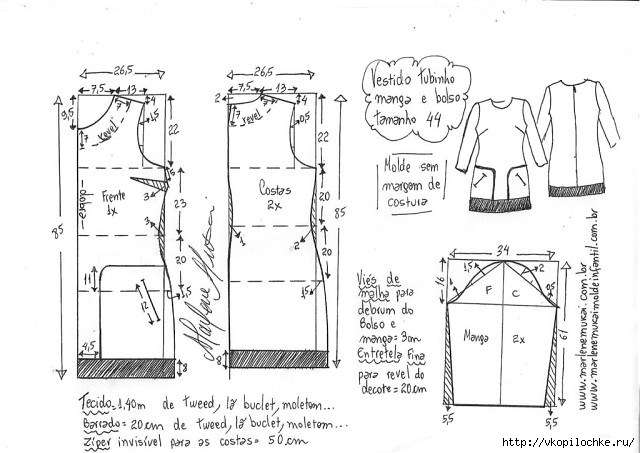 26,5
7,5
13
4
9,5
7
7
revel
1,5
22
5
dobra
Frente
1x
3
23
85
3
20
11
12
1,5
4,5
8
26,5
7,5
13
2
4
7
5
revel
0,5
22
Costas
2x
20
85
1
2
20
1,5
8
8
Marlene Mukai
Vestido tubinho
manga e bolso
tamanho 44
Molde sem
margem de
costura
Viés de
malha para
debrum do
Bolso e
manga = 3cm
Entretela fina
para revel do
decote = 20cm
34
16
1,5
2
F
C
0,5
Manga
2x
61
5,5
5,5
www.marlenemukai.com.br
www.marlenemukaimoldeinfantil.com.br
Tecido = 1,40m de tweed, lã buclet, moletom...
Barrado = 20cm de tweed, lã buclet, moletom...
Zíper invisível para as costas = 50cm
http://vkopilochke.ru/